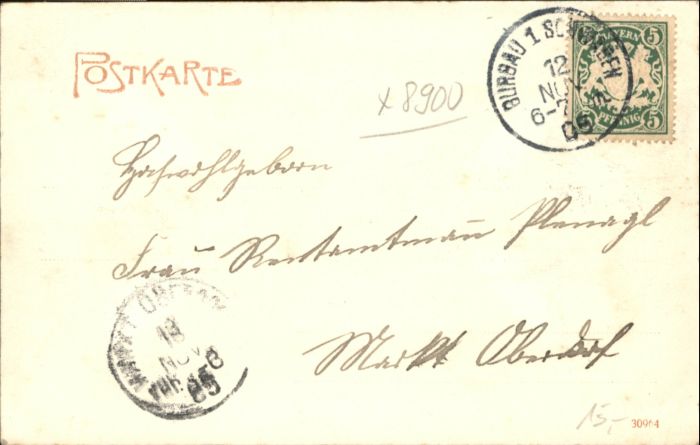 POSTKARTE
BURGAU 1. SCHWABEN
12
NOV
6-7
05
BAYERN
5 5
PFENNIG
x 8900
Hochwohlgeboren
Frau Rentamtmann
Markt Oberdorf
MARKT OBERDORF
13
NOV
05
15,-
30904